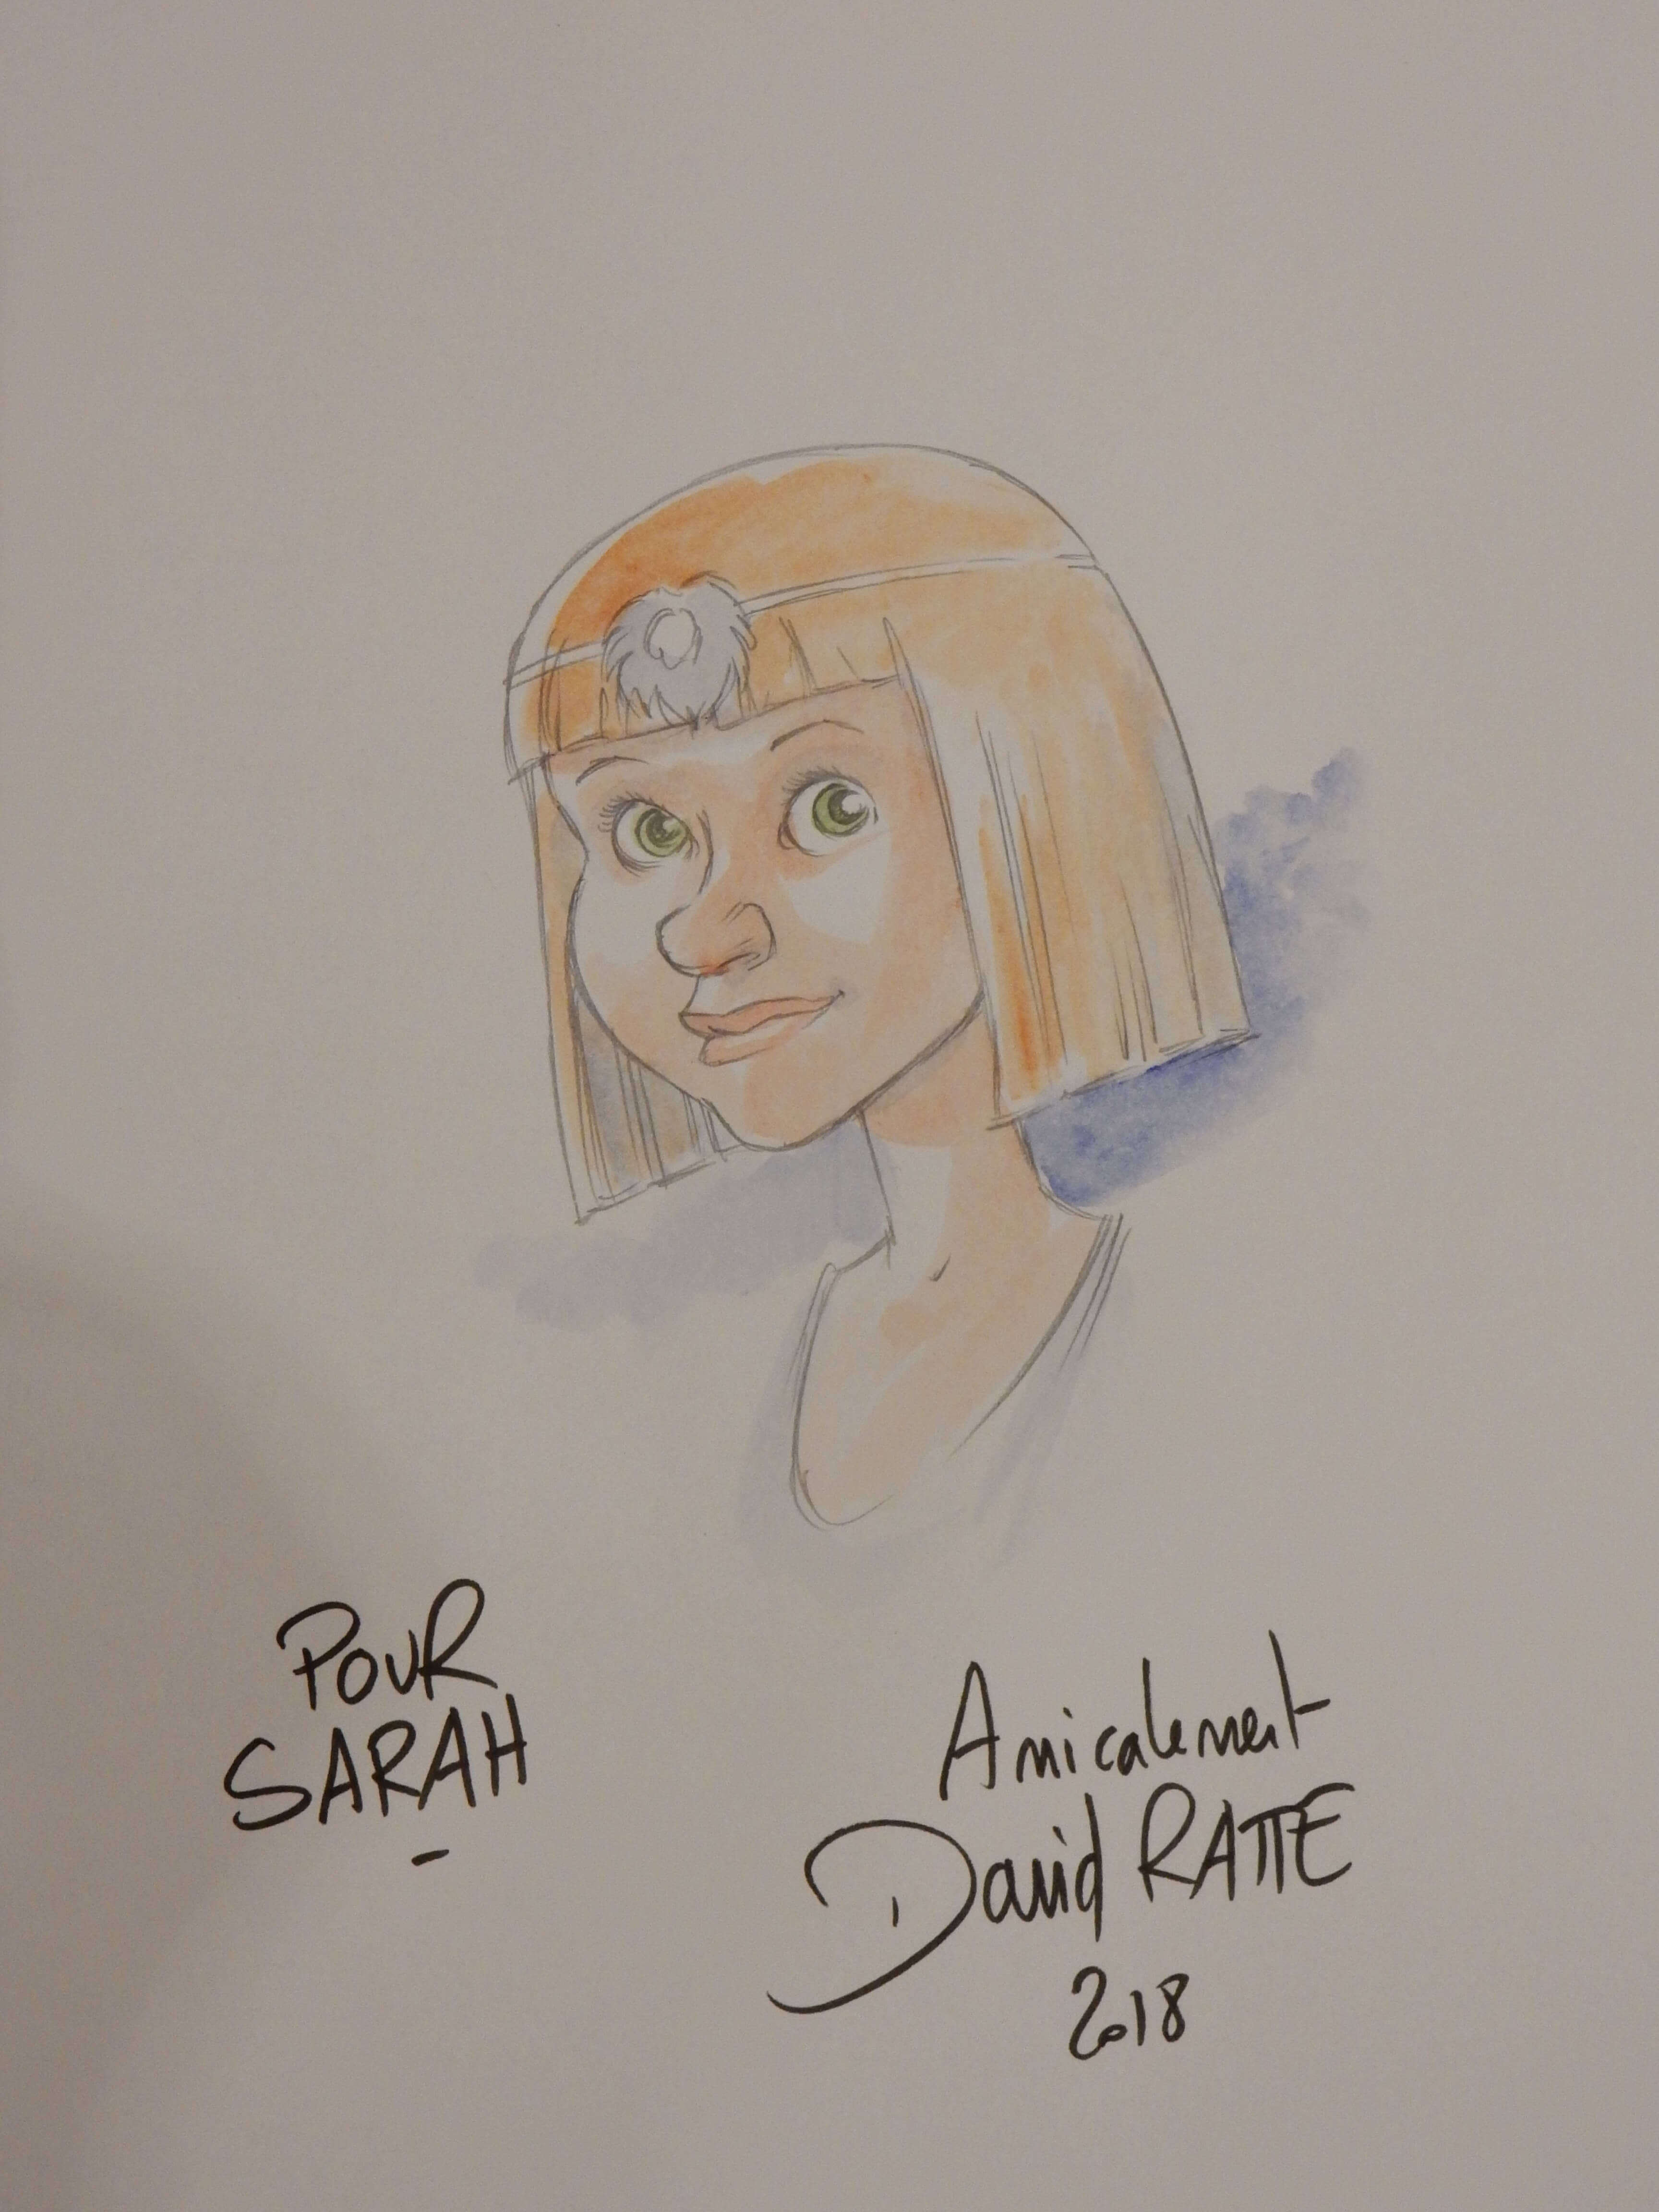 POUR
SARAH
Amicalement
David RATTE
2018